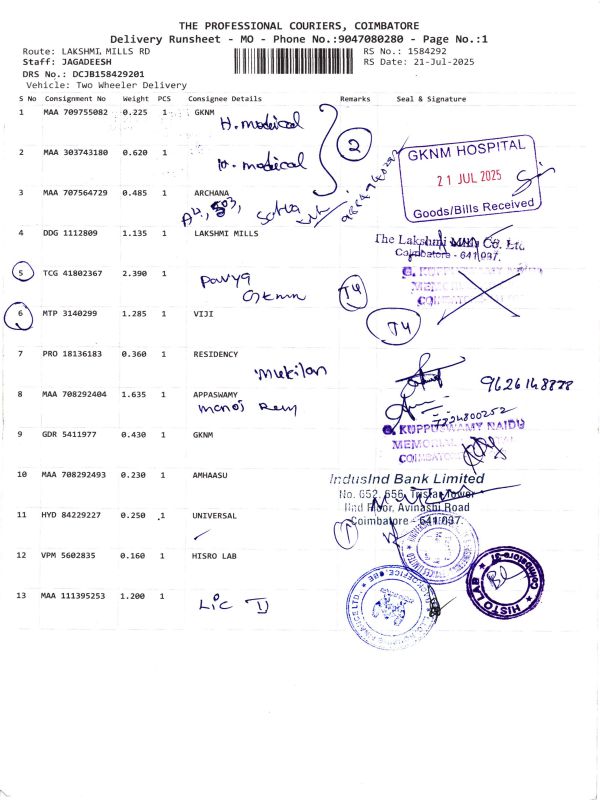 THE PROFESSIONAL COURIERS, COIMBATORE
Delivery Runsheet - MO - Phone No.:9047080280 - Page No.:1
Route: LAKSHMI MILLS RD
RS No.: 1584292
Staff: JAGADEESH
RS Date: 21-Jul-2025
DRS No.: DCJB158429201
Vehicle: Two Wheeler Delivery
S No Consignment No Weight PCS Consignee Details Remarks Seal & Signature
1 MAA 709755082 0.225 1 GKNM
H. medical
2
2 MAA 303743180 0.620 1
H. medical
GKNM HOSPITAL
21 JUL 2025
Goods/Bills Received
3 MAA 707564729 0.485 1 ARCHANA
A4, 503,
4 DDG 1112809 1.135 1 LAKSHMI MILLS
The Lakshmi Mills Co. Ltd
Coimbatore - 641 037.
5 TCG 41802367 2.390 1
Pavya
Gknm
T4
G. KUPPUSWAMY NAIDU
MEMORIAL
6 MTP 3140299 1.285 1 VIJI
T4
7 PRO 18136183 0.360 1 RESIDENCY
Mukilan
9626148878
8 MAA 708292404 1.635 1 APPASWAMY
manoj
7224800252
9 GDR 5411977 0.430 1 GKNM
G. KUPPUSWAMY NAIDU
MEMORIAL HOSPITAL
COIMBATORE
10 MAA 708292493 0.230 1 AMHAASU
IndusInd Bank Limited
No. 652, 656, Tristar Tower
IInd Floor, Avinashi Road
Coimbatore - 641 037.
11 HYD 84229227 0.250 1 UNIVERSAL
12 VPM 5602835 0.160 1 HISRO LAB
HISTO LAB
Coimbatore-37
13 MAA 111395253 1.200 1
Lic II